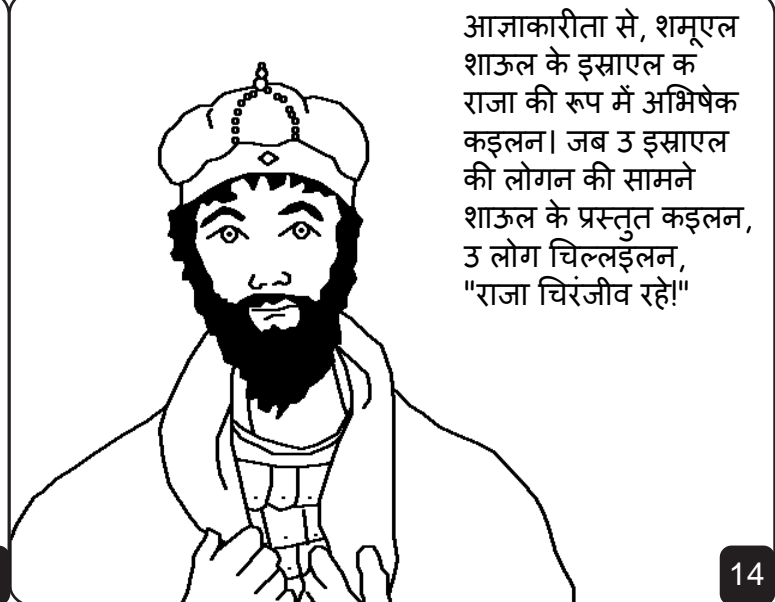 आज्ञाकारीता से, शमूएल
शाऊल के इस्राएल क
राजा की रूप में अभिषेक
कइलन। जब उ इस्राएल
की लोगन की सामने
शाऊल के प्रस्तुत कइलन,
उ लोग चिल्लइलन,
"राजा चिरंजीव रहे!"
14